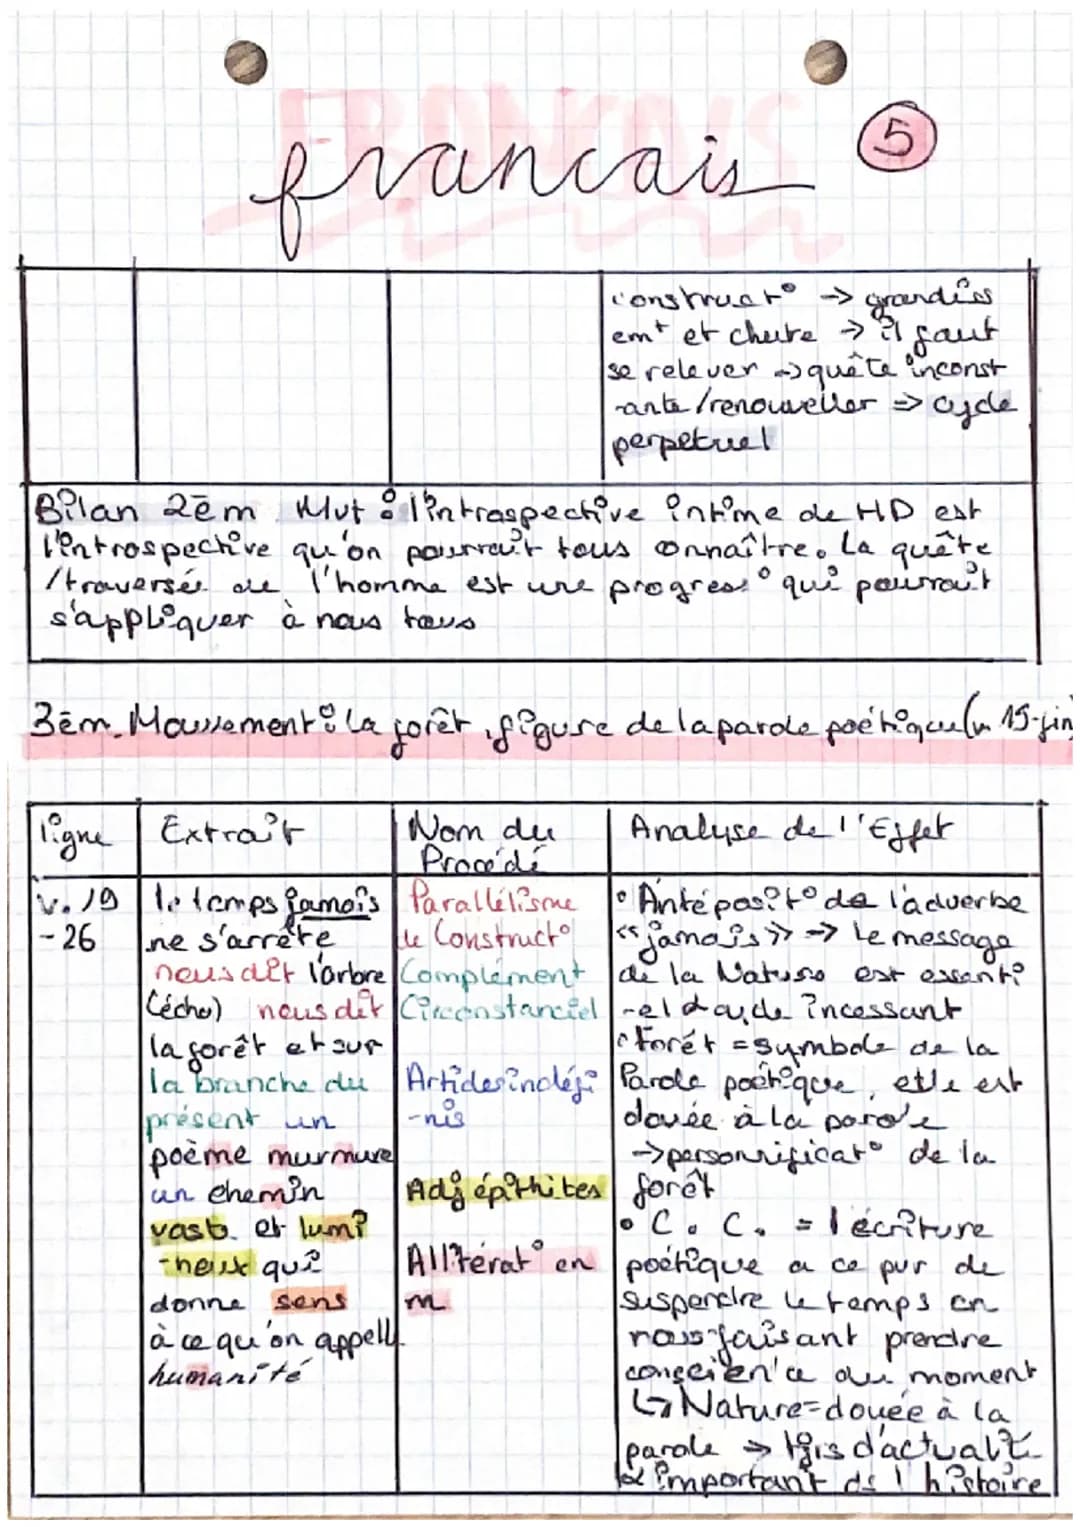 FRANCAIS
francais
5
construct° -> grandiss
emt et chute -> il faut
se relever -> quête inconst
-ante/renouveller => cycle
perpetuel
Bilan 2ēm Mvt : l'intraspective intime de HD est
l'introspective qu'on pourrait tous connaître. La quête
/traversée de l'homme est une progress° qui pourrait
s'appliquer à nous tous
3ēm. Mouvement : la forêt, figure de la parole poétique (v. 19-fin)
ligne
Extrait
Nom du
Procédé
Analyse de l'Effet
v. 19
-26
le temps jamais
ne s'arrête
nous dit l'arbre
(écho) nous dit
la forêt et sur
la branche du
présent un
poème murmure
un chemin
vaste et lumi
-neux qui
donne sens
à ce qu'on appelle
humanité
Parallélisme
de Construct°
Complément
Circonstanciel
Articles indéfi
-nis
Adj épithètes
Allitérat° en
m
• Antéposit° de l'adverbe
« jamais » -> Le message
de la Nature est essenti
-el incessant
• Forêt = symbole de la
Parole poétique, elle est
douée à la parole
-> personnificat° de la
forêt
• C. C. = l'écriture
poétique a ce pvr de
suspendre le temps en
nous faisant prendre
conscience du moment
↳ Nature = douée à la
parole -> tjrs d'actualité
& important ds l'histoire